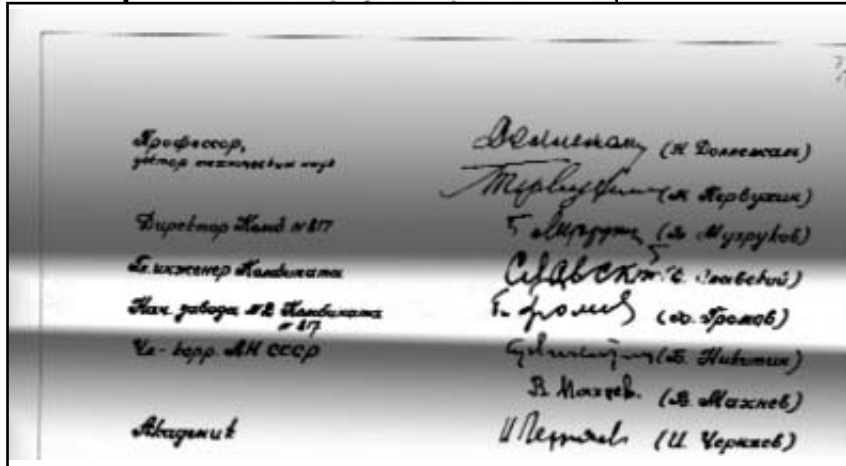 Профессор,
доктор технических наук (Н. Доллежаль)
(М. Первухин)
Директор Комб. № 817 Б. Музруков (Б. Музруков)
Гл. инженер Комбината Славский (Е. Славский)
Нач. завода № 2 Комбината Громов (Б. Громов)
№ 817
Чл-корр. АН СССР (Б. Никитин)
В. Махнев. (В. Махнев)
Академик И Черняев (И. Черняев)